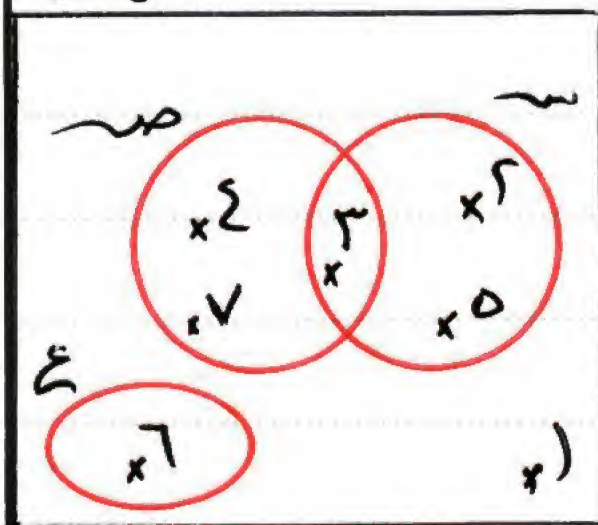 صـ سـ
٤ ٣ ٢
٧ ٥
ع
٦ ١